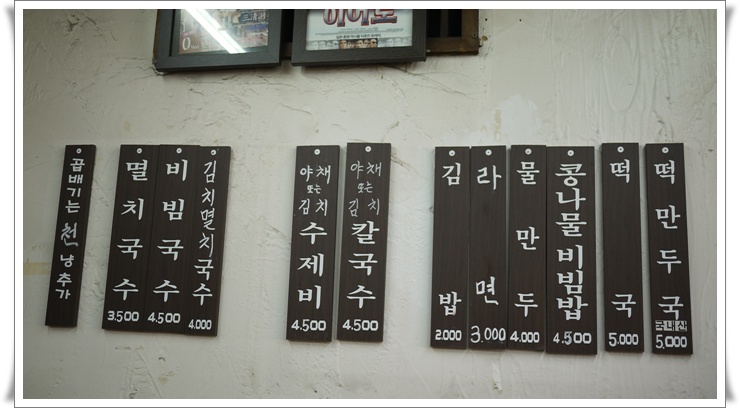 곱배기는 천냥추가
멸치국수
3.500
비빔국수
4.500
김치멸치국수
4.000
야채 또는 김치
수제비
4.500
야채 또는 김치
칼국수
4.500
김밥
2.000
라면
3.000
물만두
4.000
콩나물비빔밥
4.500
떡국
5.000
떡만두국
국내산
5.000